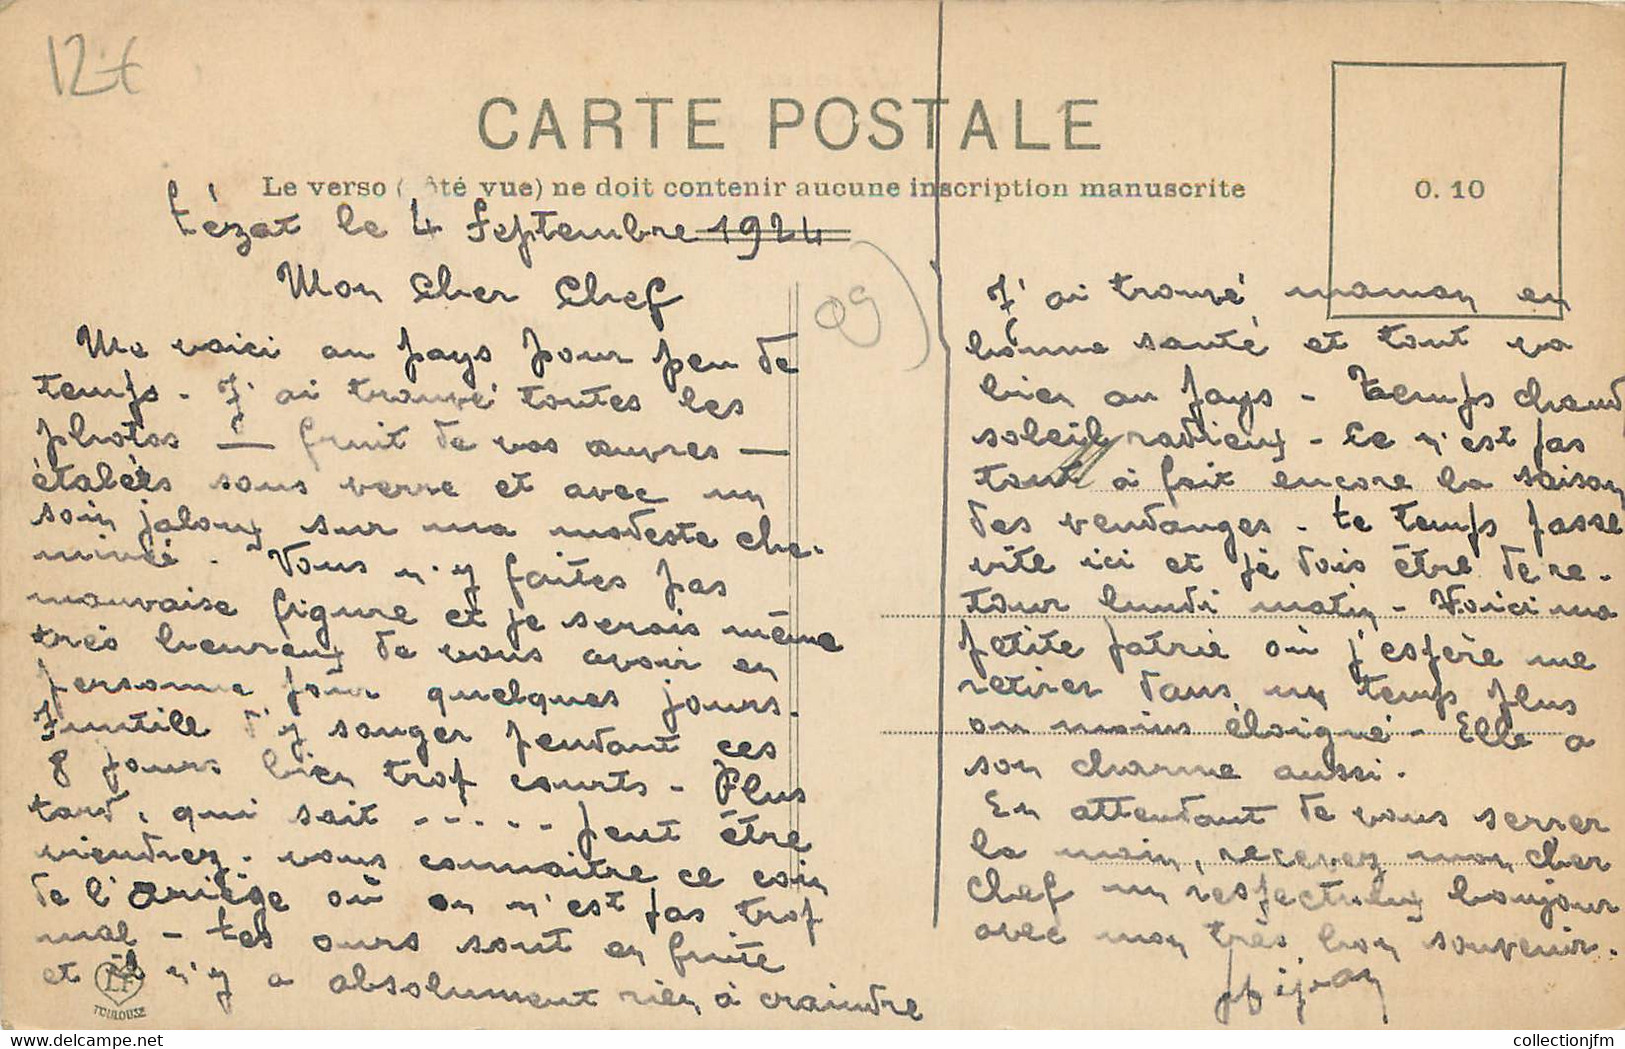 12€
CARTE POSTALE
Le verso (côté vue) ne doit contenir aucune inscription manuscrite
0.10
Lézat le 4 Septembre 1924
09
Mon Cher Chef
Me voici au pays pour peu de
temps - J'ai trouvé toutes les
photos — fruit de vos œuvres —
étalées sous verre et avec un
soin jaloux sur ma modeste che-
minée. Vous n'y faites pas
mauvaise figure et je serais même
très heureux de vous avoir en
personne pour quelques jours.
Inutile d'y songer pendant ces
8 jours bien trop courts - Plus
tard, qui sait ----- peut être
viendrez-vous connaitre ce coin
de l'Ariège où on n'est pas trop
mal - Les ours sont en fuite
et il n'y a absolument rien à craindre
LF
TOULOUSE
J'ai trouvé maman en
bonne santé et tout va
bien au pays - Temps chaud
soleil radieux - Ce n'est pas
tout à fait encore la saison
des vendanges - Le temps passe
vite ici et je dois être de re-
tour lundi matin - Voici ma
petite patrie où j'espère me
retirer dans un temps plus
ou moins éloigné - Elle a
son charme aussi.
En attendant de vous serrer
la main, recevez mon cher
chef un respectueux bonjour
avec mon très bon souvenir.
www.delcampe.net
collectionjfm